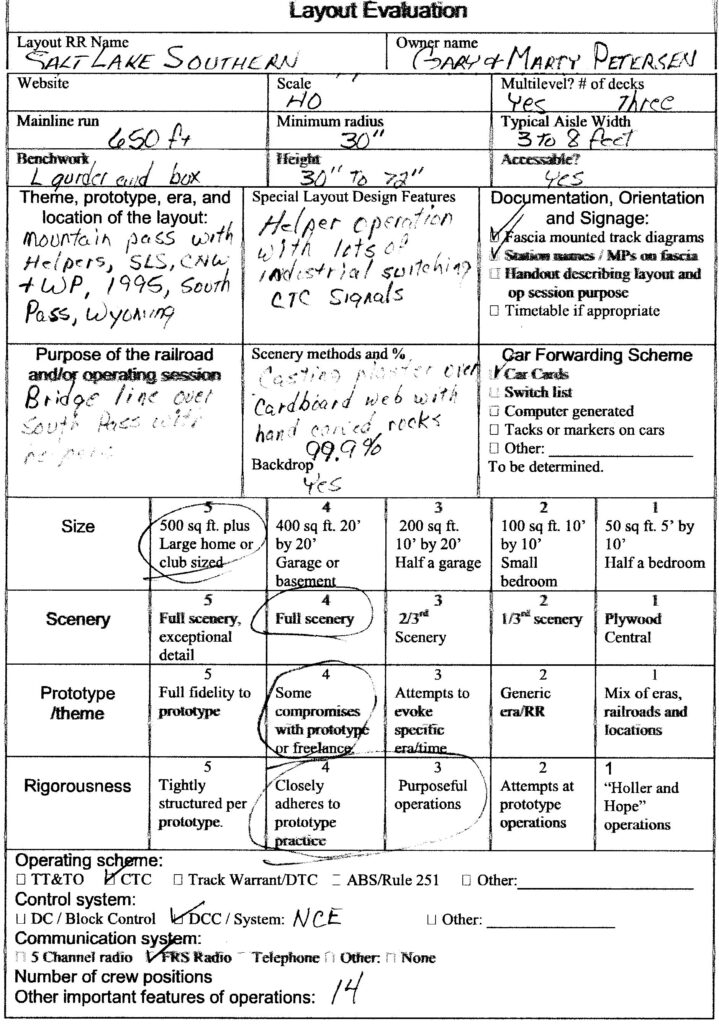 Layout Evaluation
Layout RR Name
SALT LAKE SOUTHERN
Owner name
GARY & MARTY PETERSEN
Website
Scale
HO
Multilevel? # of decks
Yes Three
Mainline run
650 ft
Minimum radius
30"
Typical Aisle Width
3 To 8 feet
Benchwork
L gurder and box
Height
30" To 72"
Accessable?
yes
Theme, prototype, era, and
location of the layout:
Mountain pass with
Helpers, SLS, CNW
+ WP, 1995, South
Pass, Wyoming
Special Layout Design Features
Helper operation
with lots of
industrial switching
CTC Signals
Documentation, Orientation
and Signage:
☑ Fascia mounted track diagrams
☑ Station names / MPs on fascia
☐ Handout describing layout and
op session purpose
☐ Timetable if appropriate
Purpose of the railroad
and/or operating session
Bridge line over
South Pass with
helpers
Scenery methods and %
Casting plaster over
Cardboard web with
hand carved rocks
99.9%
Backdrop
Yes
Car Forwarding Scheme
☑ Car Cards
☐ Switch list
☐ Computer generated
☐ Tacks or markers on cars
☐ Other:
To be determined.
Size
5
500 sq ft. plus
Large home or
club sized
4
400 sq ft. 20'
by 20'
Garage or
basement
3
200 sq ft.
10' by 20'
Half a garage
2
100 sq ft. 10'
by 10'
Small
bedroom
1
50 sq ft. 5' by
10'
Half a bedroom
Scenery
5
Full scenery,
exceptional
detail
4
Full scenery
3
2/3rd
Scenery
2
1/3rd scenery
1
Plywood
Central
Prototype
/theme
5
Full fidelity to
prototype
4
Some
compromises
with prototype
or freelance
3
Attempts to
evoke
specific
era/time
2
Generic
era/RR
1
Mix of eras,
railroads and
locations
Rigorousness
5
Tightly
structured per
prototype.
4
Closely
adheres to
prototype
practice
3
Purposeful
operations
2
Attempts at
prototype
operations
1
"Holler and
Hope"
operations
Operating scheme:
☐ TT&TO ☑ CTC ☐ Track Warrant/DTC ☐ ABS/Rule 251 ☐ Other:
Control system:
☐ DC / Block Control ☑ DCC / System: NCE ☐ Other:
Communication system:
☐ 5 Channel radio ☑ FRS Radio ☐ Telephone ☐ Other: ☐ None
Number of crew positions
Other important features of operations: 14